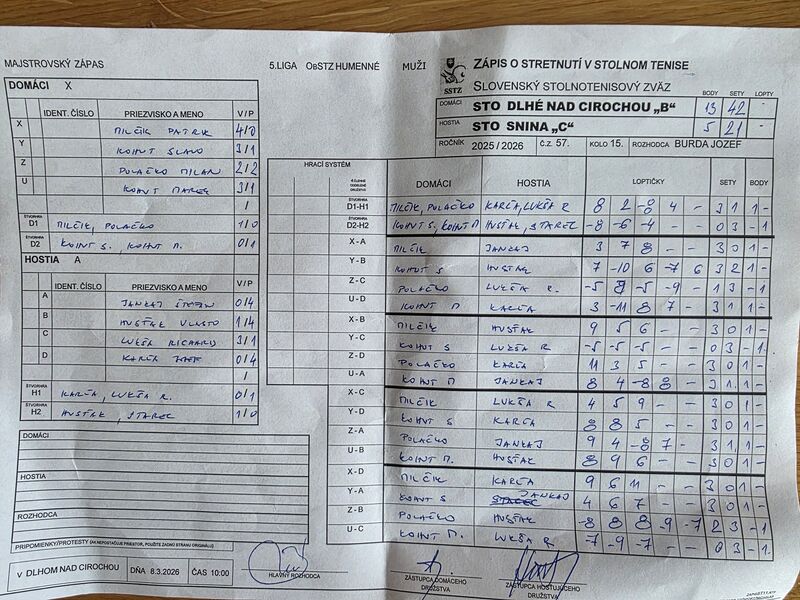 MAJSTROVSKÝ ZÁPAS 5.LIGA ObSTZ HUMENNÉ MUŽI
ZÁPIS O STRETNUTÍ V STOLNOM TENISE
SSTZ SLOVENSKÝ STOLNOTENISOVÝ ZVÄZ
BODY SETY LOPTY
DOMÁCI STO DLHÉ NAD CIROCHOU „B" 13 42 -
HOSTIA STO SNINA „C" 5 21 -
ROČNÍK 2025 / 2026 č.z. 57. KOLO 15. ROZHODCA BURDA JOZEF
DOMÁCI X
IDENT. ČÍSLO PRIEZVISKO A MENO V / P
X MILČÍK PATRIK 4/0
Y KOHUT SLAVO 3/1
Z POLAČKO MILAN 2/2
U KOHUT MAREK 3/1
/
ŠTVORHRA D1 MILČÍK, POLAČKO 1/0
ŠTVORHRA D2 KOHUT S., KOHUT M. 0/1
HOSTIA A
IDENT. ČÍSLO PRIEZVISKO A MENO V / P
A JANKAJ ŠTEFAN 0/4
B HUSŤÁK VLASTO 1/4
C LUKŠA RICHARD 3/1
D KARĽA 0/4
/
ŠTVORHRA H1 KARĽA, LUKŠA R. 0/1
ŠTVORHRA H2 HUSŤÁK, STAREC 1/0
DOMÁCI
HOSTIA
ROZHODCA
PRIPOMIENKY/PROTESTY (AK NEPOSTAČUJE PRIESTOR, POUŽITE ZADNÚ STRANU ORIGINÁLU)
V DLHOM NAD CIROCHOU DŇA 8.3.2026 ČAS 10:00
HRACÍ SYSTÉM DOMÁCI HOSTIA LOPTIČKY SETY BODY
ŠTVORHRA D1-H1 MILČÍK, POLAČKO KARĽA, LUKŠA R 8 2 -8 4 - 3 1 1 -
ŠTVORHRA D2-H2 KOHUT S, KOHUT M HUSŤÁK, STAREC -8 -6 -4 - - 0 3 - 1
X - A MILČÍK JANKAJ 3 7 8 - - 3 0 1 -
Y - B KOHUT S HUSŤÁK 7 -10 6 -7 6 3 2 1 -
Z - C POLAČKO LUKŠA R. -5 8 -5 -9 - 1 3 - 1
U - D KOHUT M KARĽA 3 -11 8 7 - 3 1 1 -
X - B MILČÍK HUSŤÁK 9 5 6 - - 3 0 1 -
Y - C KOHUT S LUKŠA R -5 -5 -5 - - 0 3 - 1
Z - D POLAČKO KARĽA 11 3 5 - - 3 0 1 -
U - A KOHUT M JANKAJ 8 4 -8 8 - 3 1 1 -
X - C MILČÍK LUKŠA R 4 5 9 - - 3 0 1 -
Y - D KOHUT S KARĽA 8 8 5 - - 3 0 1 -
Z - A POLAČKO JANKAJ 9 4 -8 7 - 3 1 1 -
U - B KOHUT M. HUSŤÁK 8 9 6 - - 3 0 1 -
X - D MILČÍK KARĽA 9 6 11 - - 3 0 1 -
Y - A KOHUT S JANKAJ 4 6 7 - - 3 0 1 -
Z - B POLAČKO HUSŤÁK -8 8 8 -9 -7 2 3 - 1
U - C KOHUT M. LUKŠA R -7 -9 -7 - - 0 3 - 1
HLAVNÝ ROZHODCA
ZÁSTUPCA DOMÁCEHO DRUŽSTVA
ZÁSTUPCA HOSTUJÚCEHO DRUŽSTVA